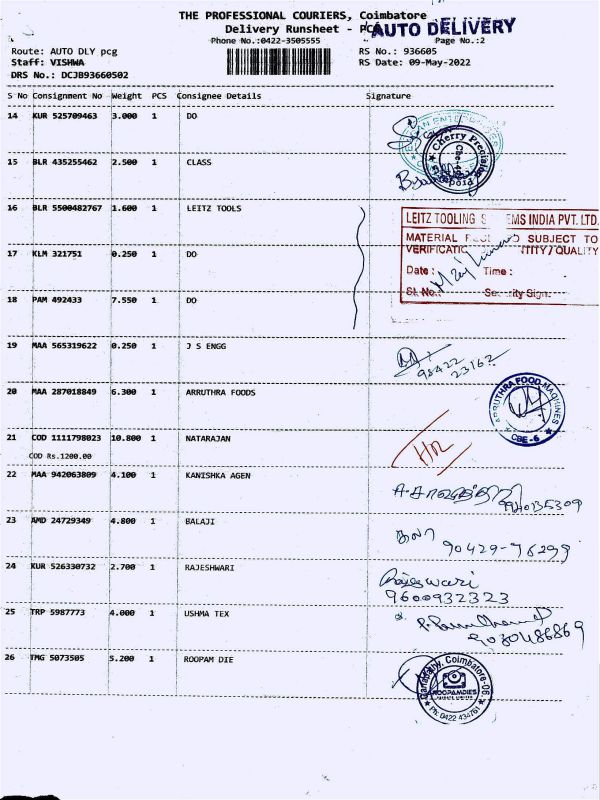 THE PROFESSIONAL COURIERS, Coimbatore
Delivery Runsheet - PCA
AUTO DELIVERY
Phone No.:0422-3505555
Page No.:2
Route: AUTO DLY pcg
RS No.: 936605
Staff: VISHWA
RS Date: 09-May-2022
DRS No.: DCJB93660502
S No Consignment No Weight PCS Consignee Details Signature
14 KUR 525709463 3.000 1 DO
Cherry Precision
15 BLR 435255462 2.500 1 CLASS
16 BLR 5500482767 1.600 1 LEITZ TOOLS
LEITZ TOOLING S EMS INDIA PVT. LTD.
MATERIAL SUBJECT TO
VERIFICATI TITY / QUALITY
17 KLM 321751 0.250 1 DO
Date : Time :
Sl. No.: Security Sign:
18 PAM 492433 7.550 1 DO
19 MAA 565319622 0.250 1 J S ENGG
98422
23162
20 MAA 287018849 6.300 1 ARRUTHRA FOODS
ARRUTHRA FOOD MACHINES
CBE-6
21 COD 1111798023 10.800 1 NATARAJAN
COD Rs.1200.00
22 MAA 942063809 4.100 1 KANISHKA AGEN
23 AMD 24729349 4.800 1 BALAJI
90429-76299
24 KUR 526330732 2.700 1 RAJESHWARI
Rajeswari
9600932323
25 TRP 5987773 4.000 1 USHMA TEX
9030486869
26 TMG 5073505 5.200 1 ROOPAM DIE
Ganapathy, Coimbatore-06
ROOPAMDIES
Ph: 0422 434761